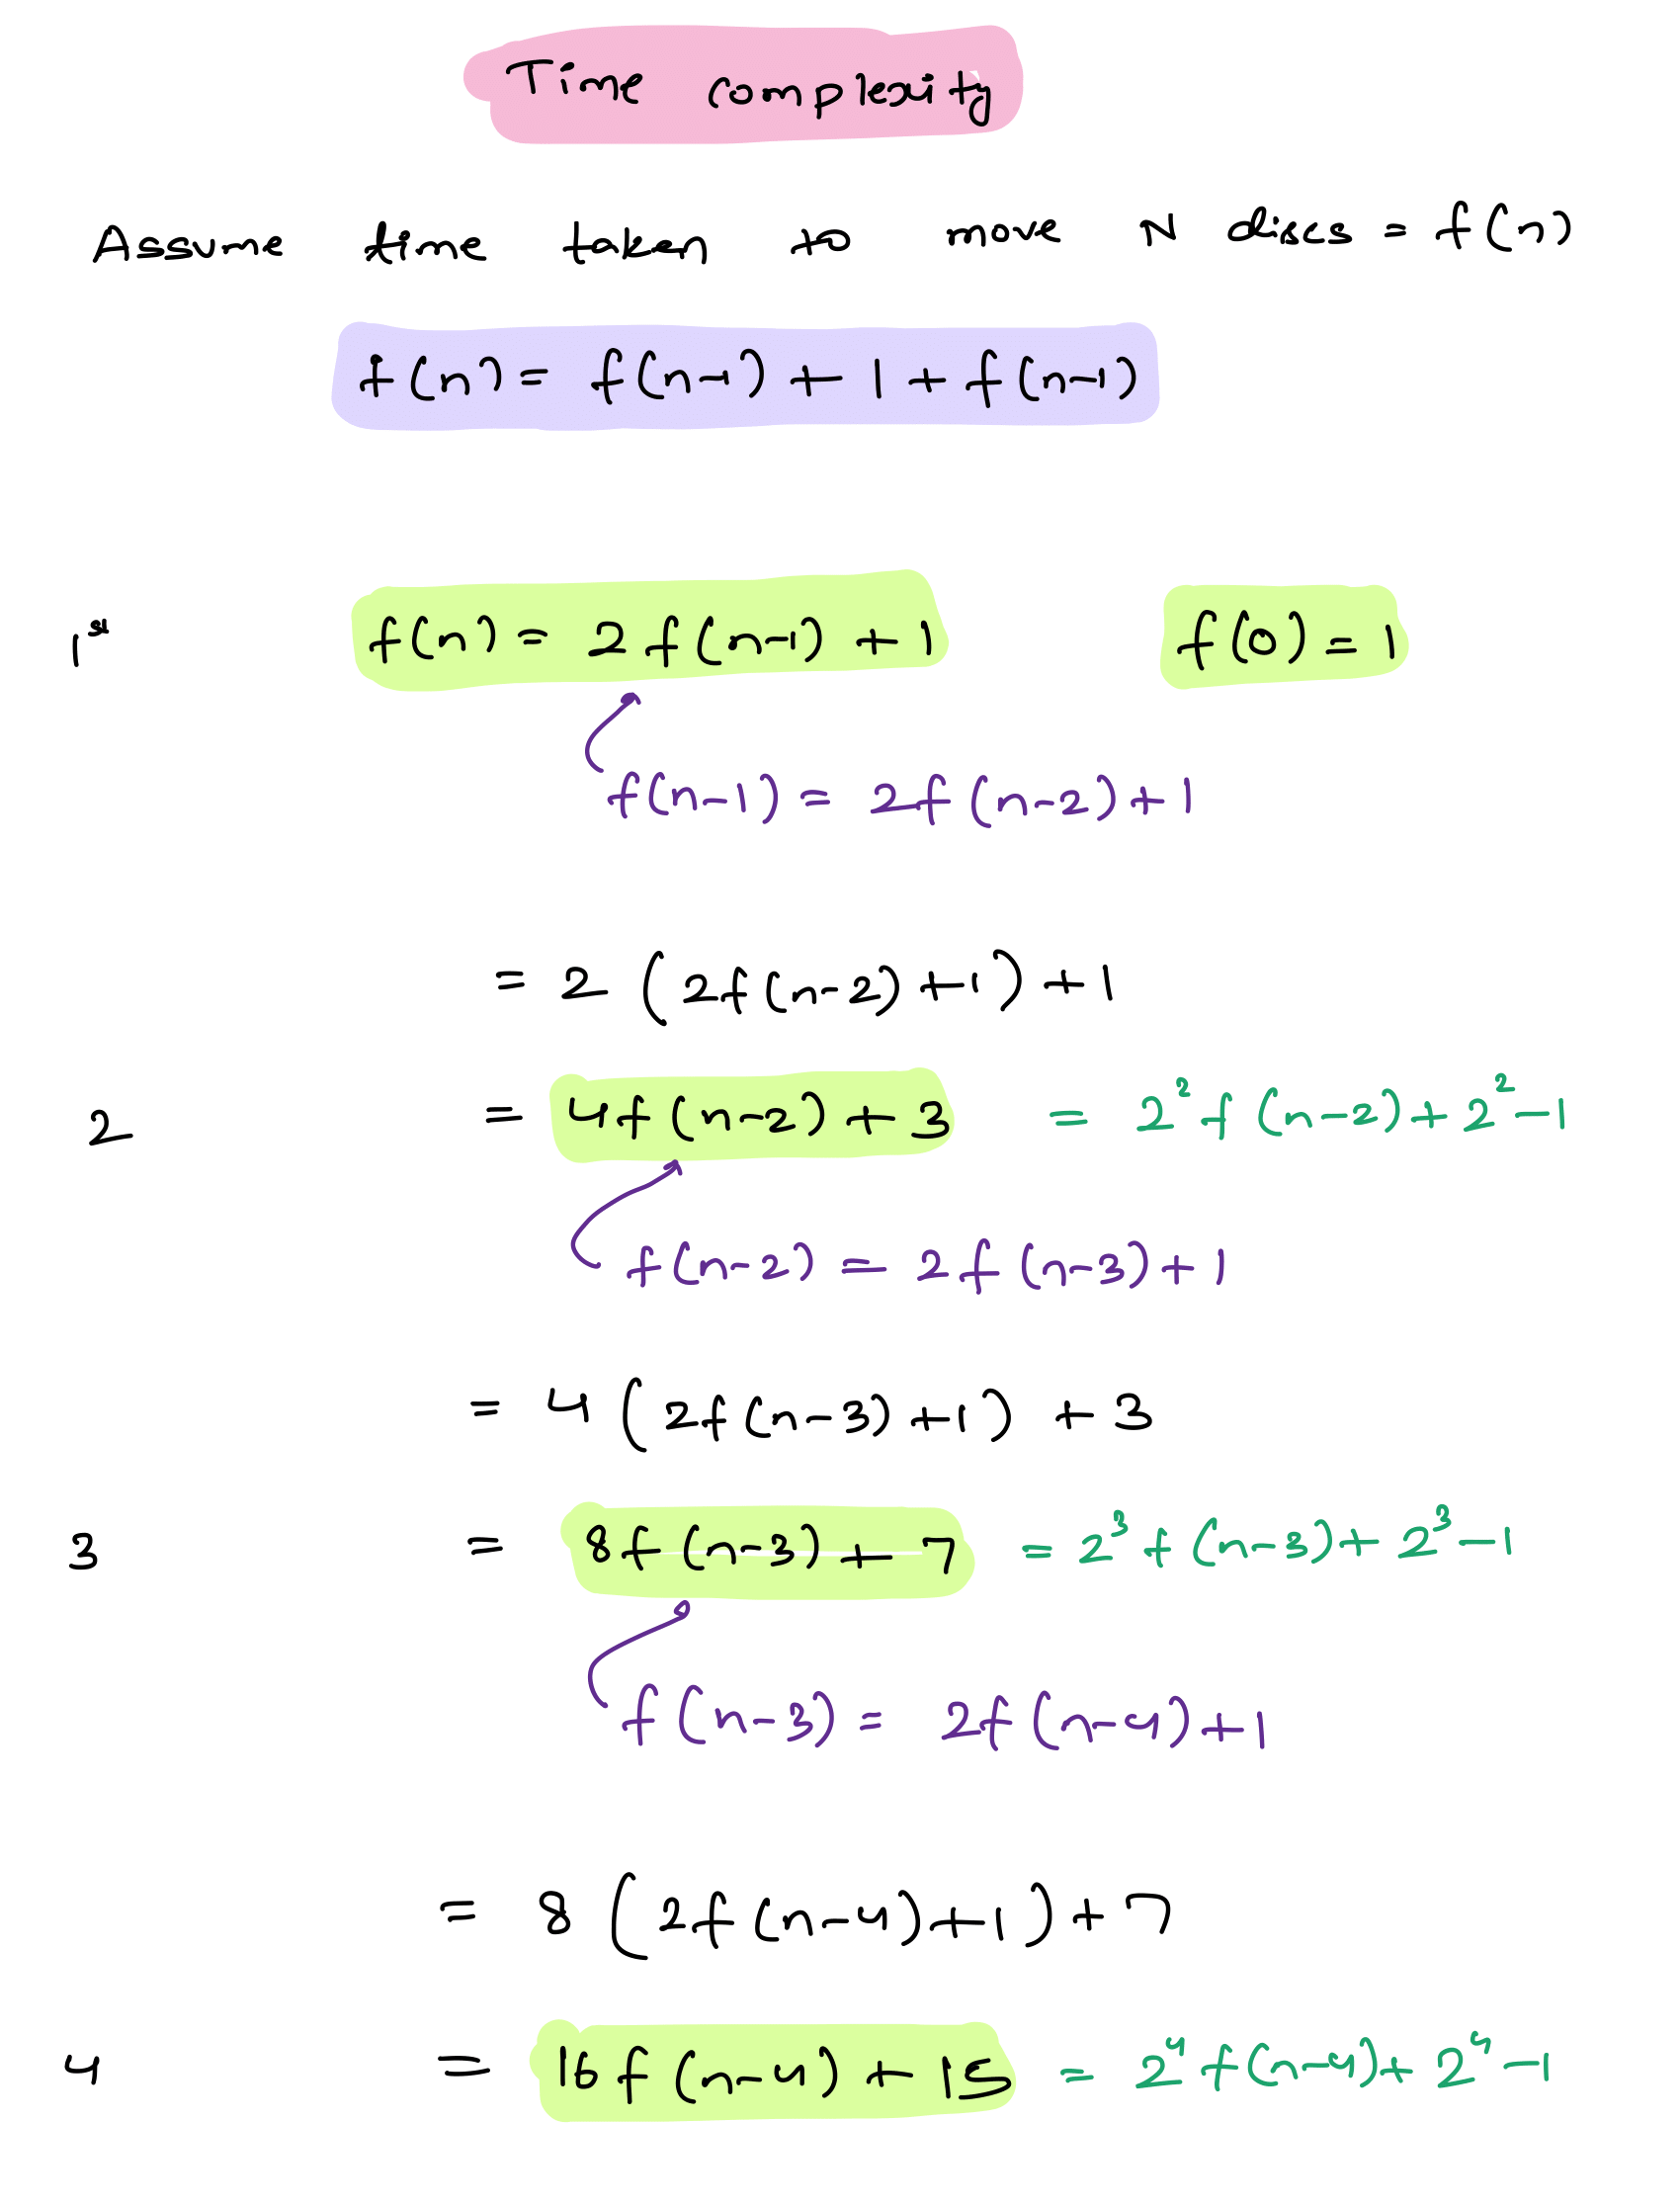 Time complexity
Assume time taken to move N discs = f(n)
f(n) = f(n-1) + 1 + f(n-1)
1st f(n) = 2f(n-1) + 1 f(0) = 1
f(n-1) = 2f(n-2) + 1
= 2 (2f(n-2) + 1) + 1
2 = 4f(n-2) + 3 = 2² f(n-2) + 2² - 1
f(n-2) = 2f(n-3) + 1
= 4 (2f(n-3) + 1) + 3
3 = 8f(n-3) + 7 = 2³ f(n-3) + 2³ - 1
f(n-3) = 2f(n-4) + 1
= 8 (2f(n-4) + 1) + 7
4 = 16 f(n-4) + 15 = 2⁴ f(n-4) + 2⁴ - 1